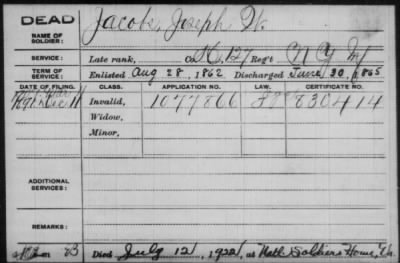 DEAD
NAME OF SOLDIER:
Jacobs, Joseph W.
SERVICE: Late rank, Co K, 127 Reg't N Y Inf
TERM OF SERVICE: Enlisted Aug 28, 1862 Discharged June 30, 1865
DATE OF FILING. CLASS. APPLICATION NO. LAW. CERTIFICATE NO.
1891 Dec 11 Invalid, 1077866 830414
Widow,
Minor,
ADDITIONAL SERVICES:
REMARKS:
Died July 12, 1922, at Natl Soldiers Home, Va.